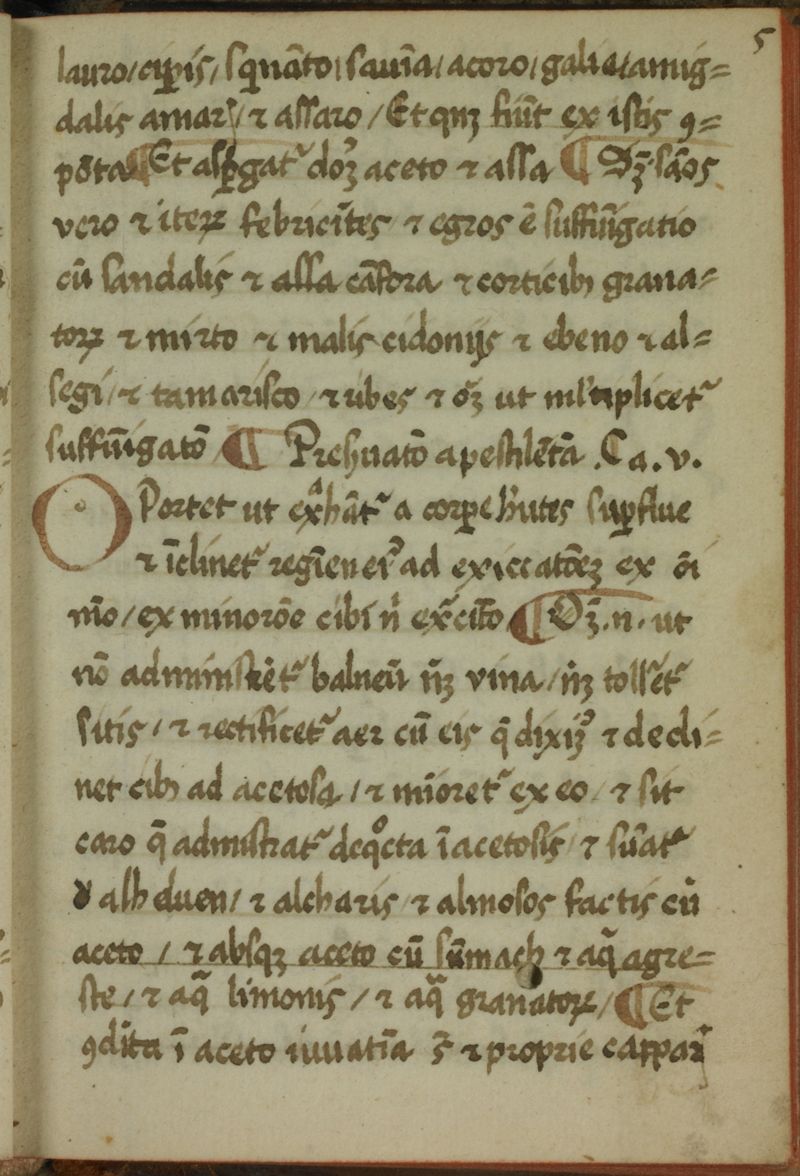 5
lauro / cip̄is / sq̄nāto / sauīa / acoro / galia / amig=
dalis amar̄ / ⁊ assaro / Et qn̄ʒ fiūt ex istis ꝯ=
pōta ¶ Et asꝑgatʳ doʒ aceto ⁊ assa ¶ Dʒ sāos
vero ⁊ iteꝝ febricītes ⁊ egros ē suffūīgatio
cū sandalis ⁊ assa cāfora ⁊ corticibꝫ grana=
toꝝ ⁊ mirto ⁊ malis cidonijs ⁊ ebeno ⁊ al=
segi / ⁊ tamarisco / ⁊ ribes ⁊ oʒ ut ml̄tiplicetʳ
suffūīgatō ¶ Pręseruatō a pestilētā . Ca . v .
OPortet ut exʰāt̄ʳ a corꝑe hūtes suꝑflue
⁊ īclinetʳ regīen eiꝰ ad exiccatōeʒ ex oī
mō / ex minorōe cibi nͥ ex̄cīto ¶ Dʒ . n . ut
nō administrētʳ balneū nͥʒ vina / nͥʒ tollētʳ
sitis / ⁊ rectificetʳ aer cū eis q̄ diximꝰ ⁊ decli=
net cibꝫ ad acetosa / ⁊ mīoretʳ ex eo / ⁊ sit
caro q̄ admīstratʳ decocta ī acetosis / ⁊ sūatʳ
ꝺ alh duen / ⁊ alcharis ⁊ almosos factis cū
aceto / ⁊ absqʒ aceto cū sūmach ⁊ aq̄ agre=
ste / ⁊ aq̄ limonis / ⁊ aq̄ granatoꝝ / ¶ Et
ꝯdita ī aceto iuuatīa st̄ ⁊ proprie cappari